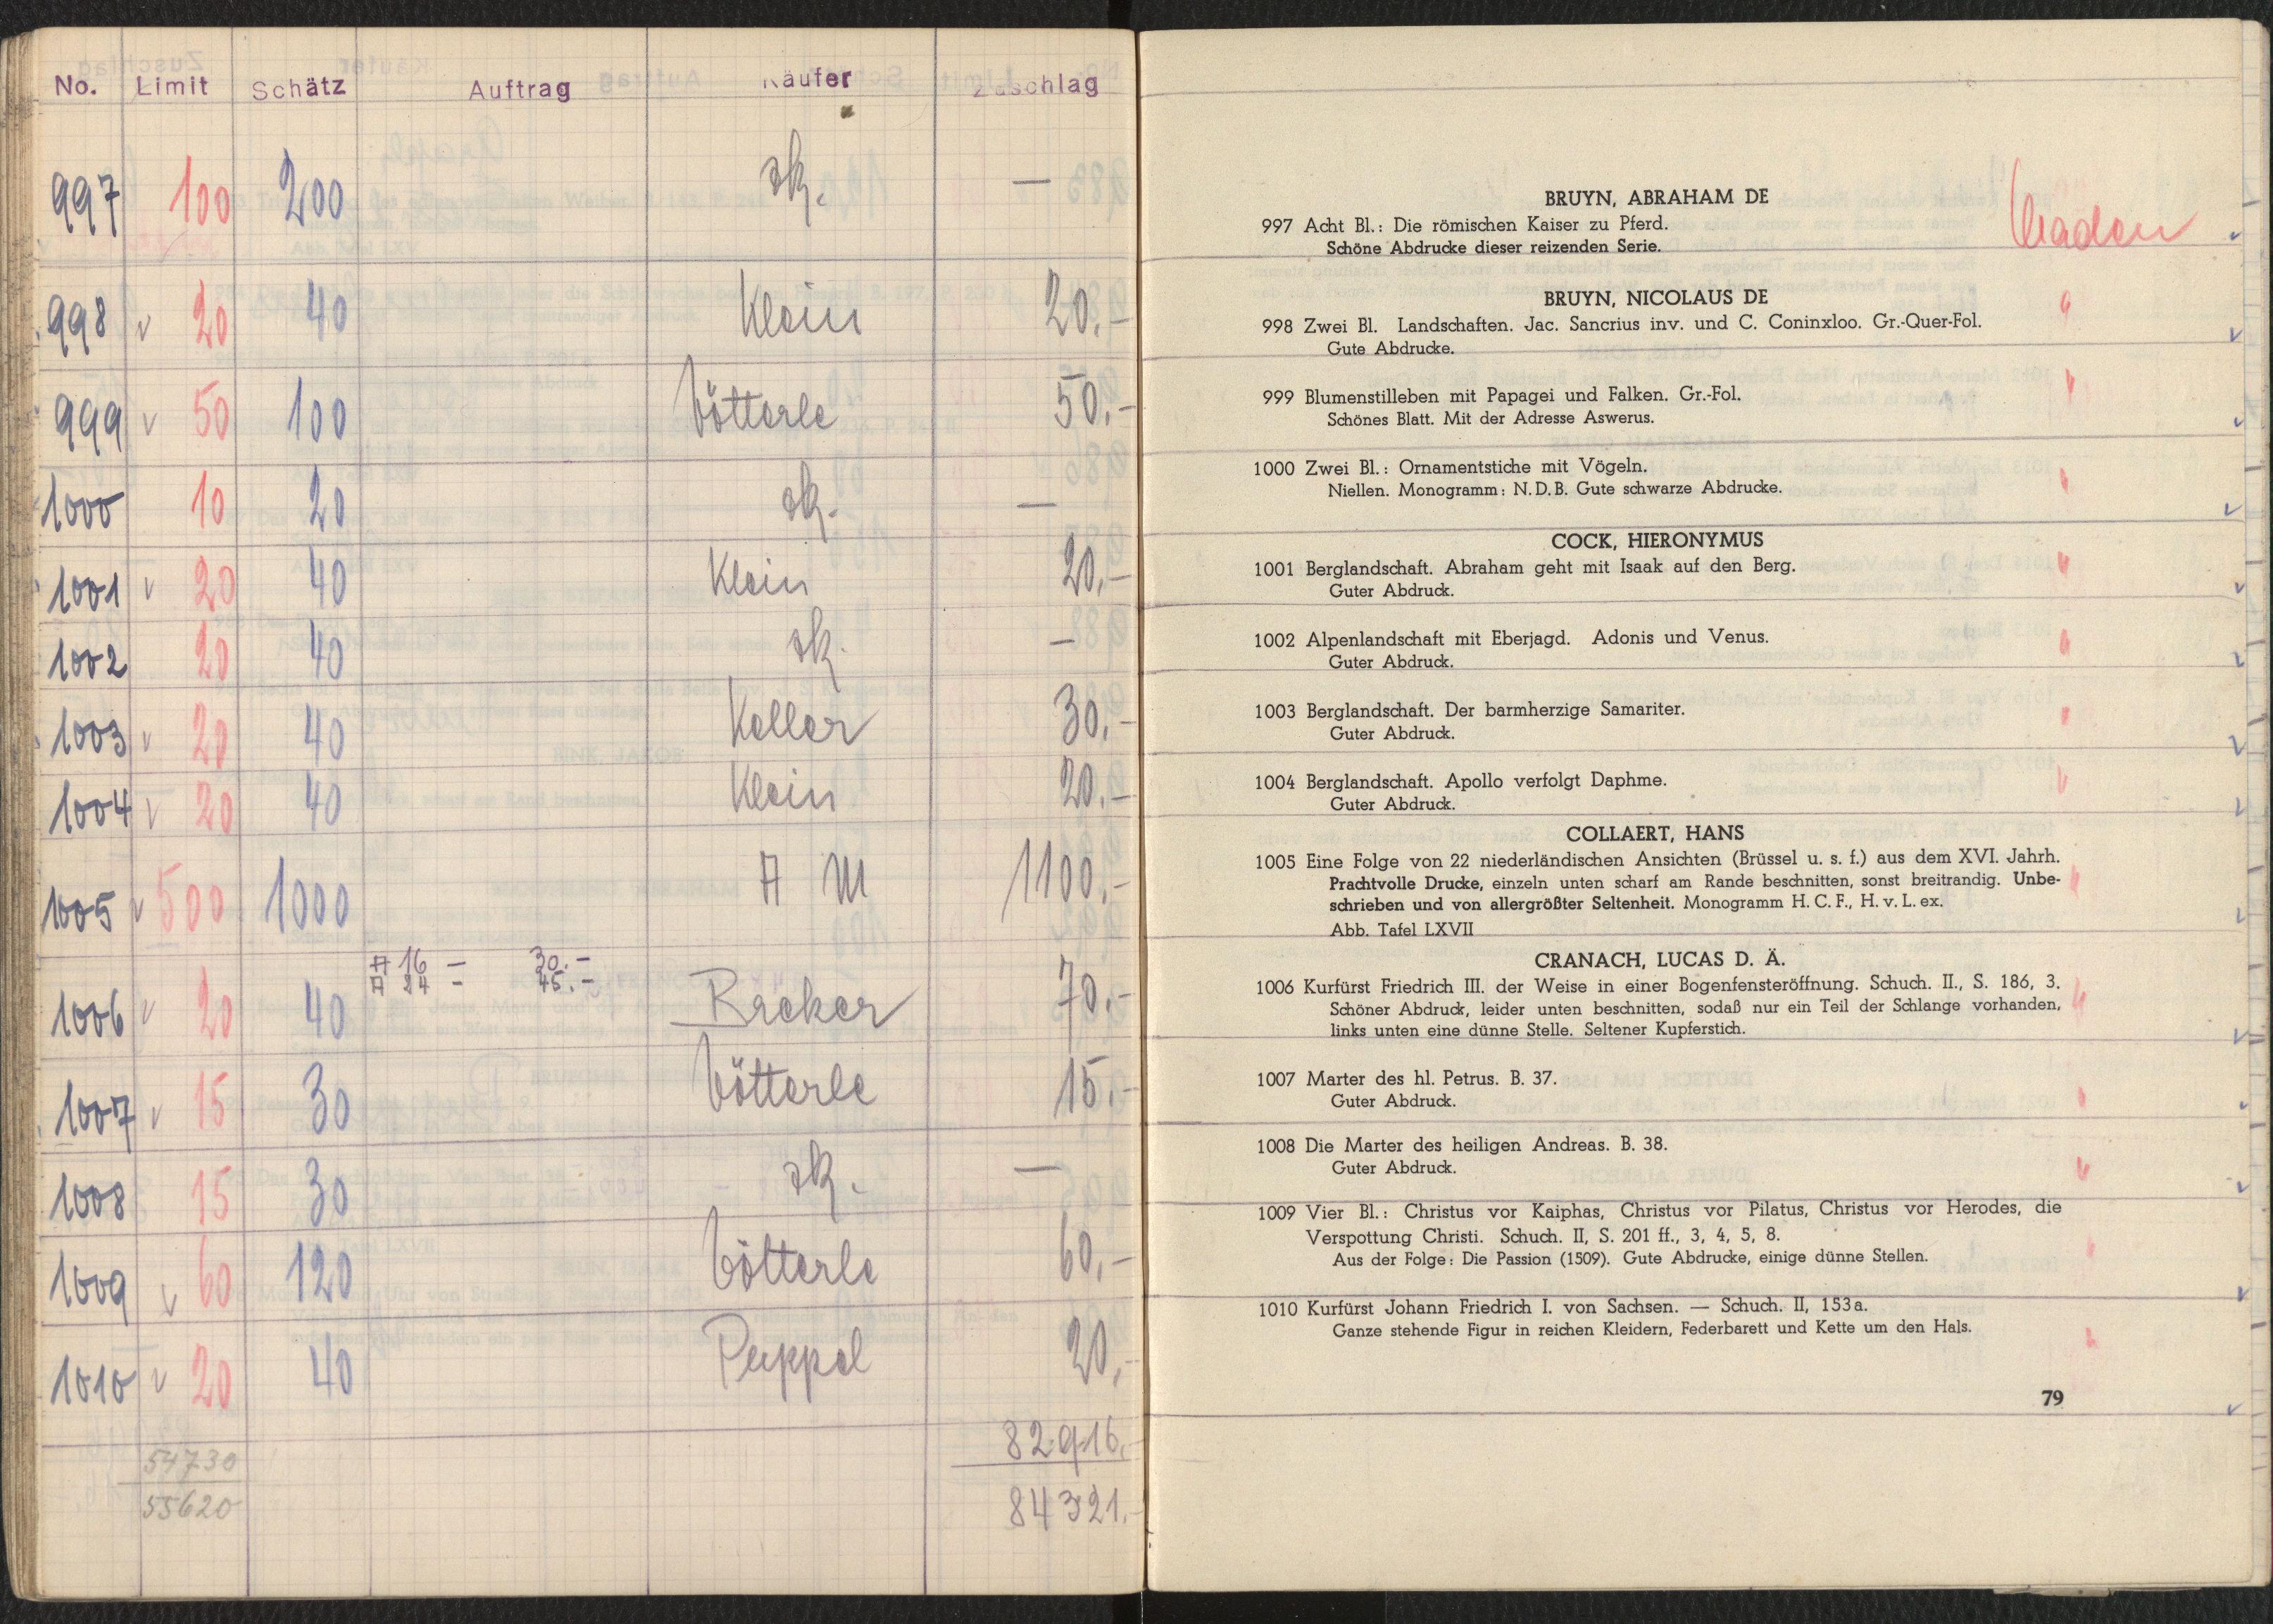 No. Limit Schätz Auftrag Käufer Zuschlag
997 100 200 zk. —
998 v 20 40 Klein 20.-
999 v 50 100 Vötterle 50.-
1000 10 20 zk. —
1001 v 20 40 Klein 20.-
1002 20 40 zk. —
1003 v 20 40 Keller 30.-
1004 v 20 40 Klein 20.-
1005 v 500 1000 A M 1100.-
A 16 — 30.-
A 24 - 45.-
1006 v 20 40 70.-
1007 v 15 30 Vötterle 15.-
1008 15 30 zk. —
1009 v 60 120 Vötterle 60.-
1010 v 20 40 Puppel 20.-
82916.-
54730 84321.-
55620
BRUYN, ABRAHAM DE
997 Acht Bl.: Die römischen Kaiser zu Pferd.
Schöne Abdrucke dieser reizenden Serie.
BRUYN, NICOLAUS DE
998 Zwei Bl. Landschaften. Jac. Sancrius inv. und C. Coninxloo. Gr.-Quer-Fol.
Gute Abdrucke.
999 Blumenstilleben mit Papagei und Falken. Gr.-Fol.
Schönes Blatt. Mit der Adresse Aswerus.
1000 Zwei Bl.: Ornamentstiche mit Vögeln.
Niellen. Monogramm: N.D.B. Gute schwarze Abdrucke.
COCK, HIERONYMUS
1001 Berglandschaft. Abraham geht mit Isaak auf den Berg.
Guter Abdruck.
1002 Alpenlandschaft mit Eberjagd. Adonis und Venus.
Guter Abdruck.
1003 Berglandschaft. Der barmherzige Samariter.
Guter Abdruck.
1004 Berglandschaft. Apollo verfolgt Daphme.
Guter Abdruck.
COLLAERT, HANS
1005 Eine Folge von 22 niederländischen Ansichten (Brüssel u. s. f.) aus dem XVI. Jahrh.
Prachtvolle Drucke, einzeln unten scharf am Rande beschnitten, sonst breitrandig. Unbe-
schrieben und von allergrößter Seltenheit. Monogramm H. C. F., H. v. L. ex.
Abb. Tafel LXVII
CRANACH, LUCAS D. Ä.
1006 Kurfürst Friedrich III. der Weise in einer Bogenfensteröffnung. Schuch. II., S. 186, 3.
Schöner Abdruck, leider unten beschnitten, sodaß nur ein Teil der Schlange vorhanden,
links unten eine dünne Stelle. Seltener Kupferstich.
1007 Marter des hl. Petrus. B. 37.
Guter Abdruck.
1008 Die Marter des heiligen Andreas. B. 38.
Guter Abdruck.
1009 Vier Bl.: Christus vor Kaiphas, Christus vor Pilatus, Christus vor Herodes, die
Verspottung Christi. Schuch. II, S. 201 ff., 3, 4, 5, 8.
Aus der Folge: Die Passion (1509). Gute Abdrucke, einige dünne Stellen.
1010 Kurfürst Johann Friedrich I. von Sachsen. — Schuch. II, 153a.
Ganze stehende Figur in reichen Kleidern, Federbarett und Kette um den Hals.
79